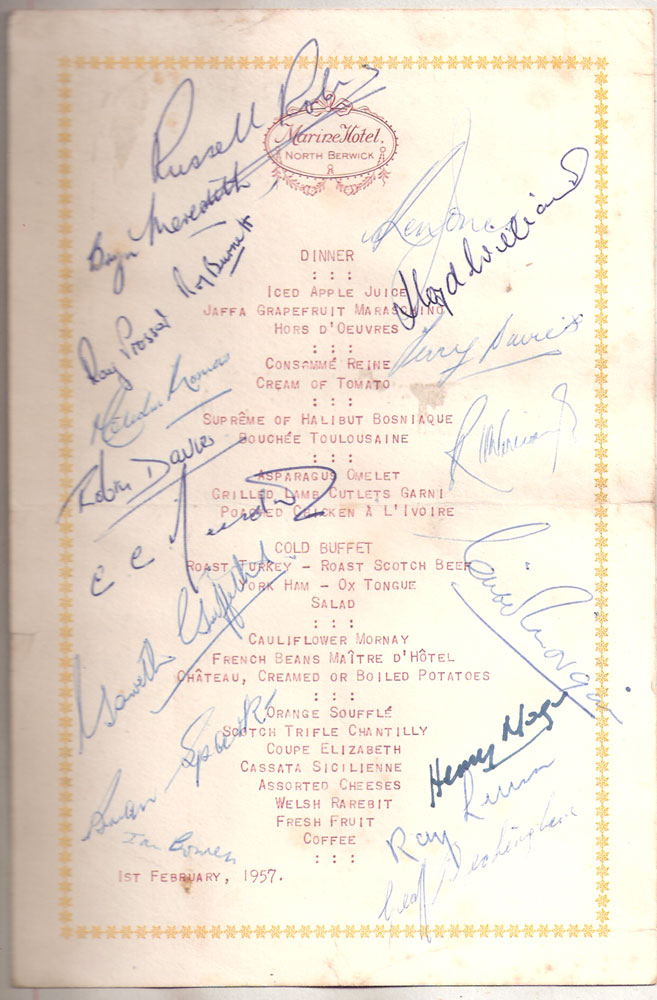 Russell Robins
Marine Hotel,
NORTH BERWICK
Bryn Meredith
Ken Jones
Lloyd Williams
Roy Burnett
DINNER
: : :
ICED APPLE JUICE
JAFFA GRAPEFRUIT MARASCHINO
HORS D'OEUVRES
: : :
Ray Prosser
Terry Davies
CONSOMMÉ REINE
CREAM OF TOMATO
: : :
Malcolm Thomas
SUPRÊME OF HALIBUT BOSNIAQUE
BOUCHÉE TOULOUSAINE
: : :
R H Williams
Robin Davies
ASPARAGUS OMELET
GRILLED LAMB CUTLETS GARNI
POACHED CHICKEN À L'IVOIRE
C C Meredith
COLD BUFFET
ROAST TURKEY - ROAST SCOTCH BEEF
YORK HAM - OX TONGUE
SALAD
: : :
Gareth Griffiths
CAULIFLOWER MORNAY
FRENCH BEANS MAÎTRE D'HÔTEL
CHÂTEAU, CREAMED OR BOILED POTATOES
: : :
Morgan
ORANGE SOUFFLÉ
SCOTCH TRIFLE CHANTILLY
COUPE ELIZABETH
CASSATA SICILIENNE
ASSORTED CHEESES
WELSH RAREBIT
FRESH FRUIT
COFFEE
: : :
Brian Sparks
Henry Morgan
Ray
Ian Bowen
Geoff Beckingham
1ST FEBRUARY, 1957.